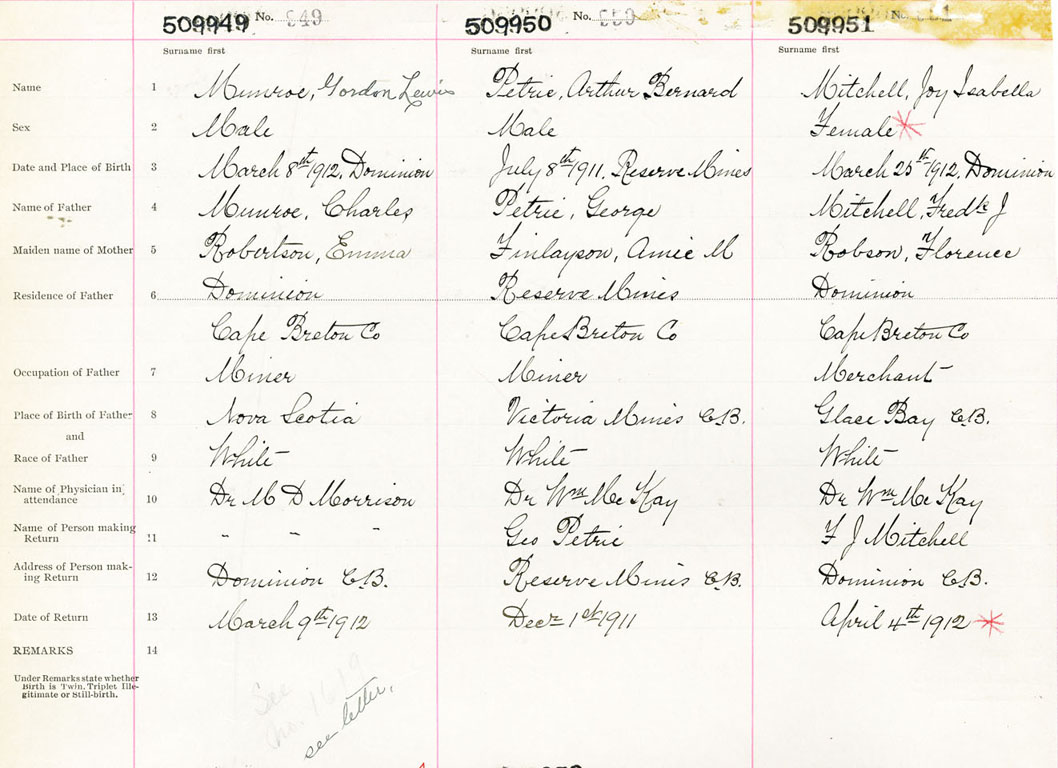 509949 No. 949 509950 No. 950 509951 No.
Surname first Surname first Surname first
Name 1 Munroe, Gordon Lewis Petrie, Arthur Bernard Mitchell, Joy Isabella
Sex 2 Male Male Female *
Date and Place of Birth 3 March 8th 1912, Dominion July 8th 1911, Reserve Mines March 25th 1912, Dominion
Name of Father 4 Munroe, Charles Petrie, George Mitchell, Fredk J
Maiden name of Mother 5 Robertson, Emma Finlayson, Amie M Robson, Florence
Residence of Father 6 Dominion Reserve Mines Dominion
Cape Breton Co Cape Breton Co Cape Breton Co
Occupation of Father 7 Miner Miner Merchant
Place of Birth of Father 8 Nova Scotia Victoria Mines C.B. Glace Bay C.B.
and
Race of Father 9 White White White
Name of Physician in
attendance 10 Dr M D Morrison Dr Wm Mc Kay Dr Wm Mc Kay
Name of Person making
Return 11 " " " Geo Petrie F J Mitchell
Address of Person mak-
ing Return 12 Dominion C.B. Reserve Mines C.B. Dominion C.B.
Date of Return 13 March 9th 1912 Decr 1st 1911 April 4th 1912 *
REMARKS 14
Under Remarks state whether
Birth is Twin, Triplet Ille-
gitimate or Still-birth.
See
no.
see letter.